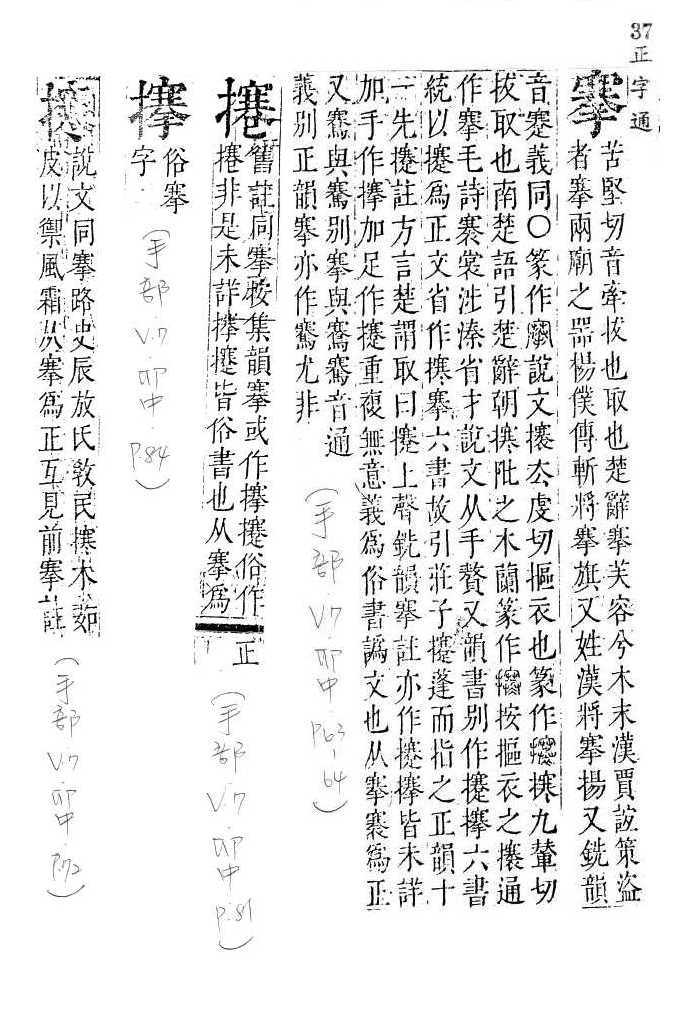 37
正字通
搴
苦堅切音牽拔也取也楚辭搴芙容兮木末漢賈誼策盜
者搴兩廟之器楊僕傳斬將搴旗又姓漢將搴揚又銑韻
音蹇義同○篆作 說文攐 虔切摳衣也篆作 攓九輦切
拔取也南楚語引楚辭朝攓阰之木蘭篆作 按摳衣之攐通
作搴毛詩褰裳涉溱省才說文从手贅又韻書別作攓㩃六書
統以攓爲正文省作攓搴六書故引莊子攓蓬而指之正韻十
一先攓註方言楚謂取曰攓上聲銑韻搴註亦作攓㩃皆未詳
加手作㩃加足作攓重複無意義爲俗書譌文也从搴褰爲正
又騫與鶱別搴與騫鶱音通
義別正韻搴亦作騫尤非
(手部 V.7 卯中 P.63-64)
舊註同搴按集韻搴或作㩃攓俗作
捲非是未詳㩃攓皆俗書也从搴爲
正
(手部 V.7 卯中 P.81)
㩃
俗搴
字
(手部 V.7 卯中 P.84)
說文同搴路史辰放氏敎民攓木茹
皮以禦風霜从搴爲正互見前搴註
(手部 V.7 卯中 P.72)